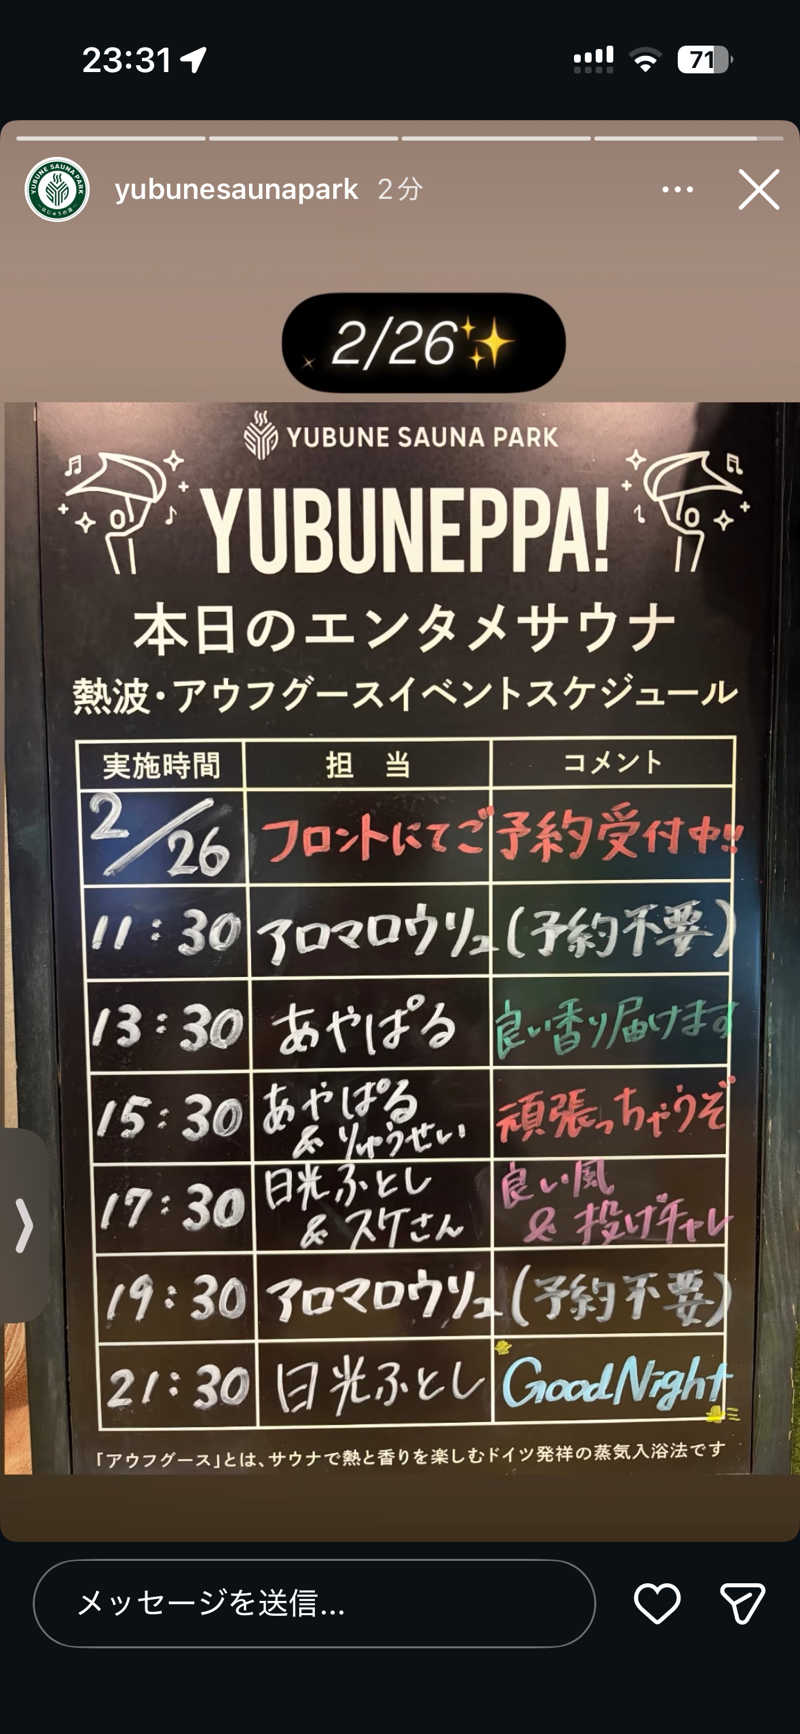 23:31
71
yubunesaunapark 2分
2/26✨
YUBUNE SAUNA PARK
YUBUNEPPA!
本日のエンタメサウナ
熱波・アウフグースイベントスケジュール
実施時間 担 当 コメント
2/26 フロントにてご予約受付中!!
11:30 アロマロウリュ(予約不要)
13:30 あやぱる 良い香り届けます
15:30 あやぱる & りゅうせい 頑張っちゃうぞ
17:30 日光ふとし & スケさん 良い風 & 投げチャレ
19:30 アロマロウリュ(予約不要)
21:30 日光ふとし Good Night
「アウフグース」とは、サウナで熱と香りを楽しむドイツ発祥の蒸気入浴法です
メッセージを送信...